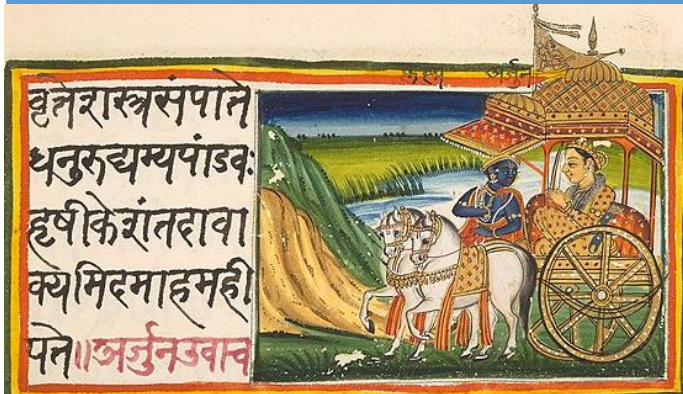 अर्जुन
वृत्तेशस्त्रसंपाते
धनुरुद्यम्यपांडवः
हृषीकेशंतदावा
क्यमिदमाहमही
पते॥अर्जुनउवाच